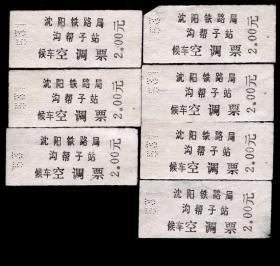 沈阳铁路局
沟帮子站
候车空调票
2.00元
沈阳铁路局
沟帮子站
候车空调票
2.00元
沈阳铁路局
沟帮子站
候车空调票
2.00元
沈阳铁路局
沟帮子站
候车空调票
2.00元
沈阳铁路局
沟帮子站
候车空调票
2.00元
沈阳铁路局
沟帮子站
候车空调票
2.00元
沈阳铁路局
沟帮子站
候车空调票
2.00元